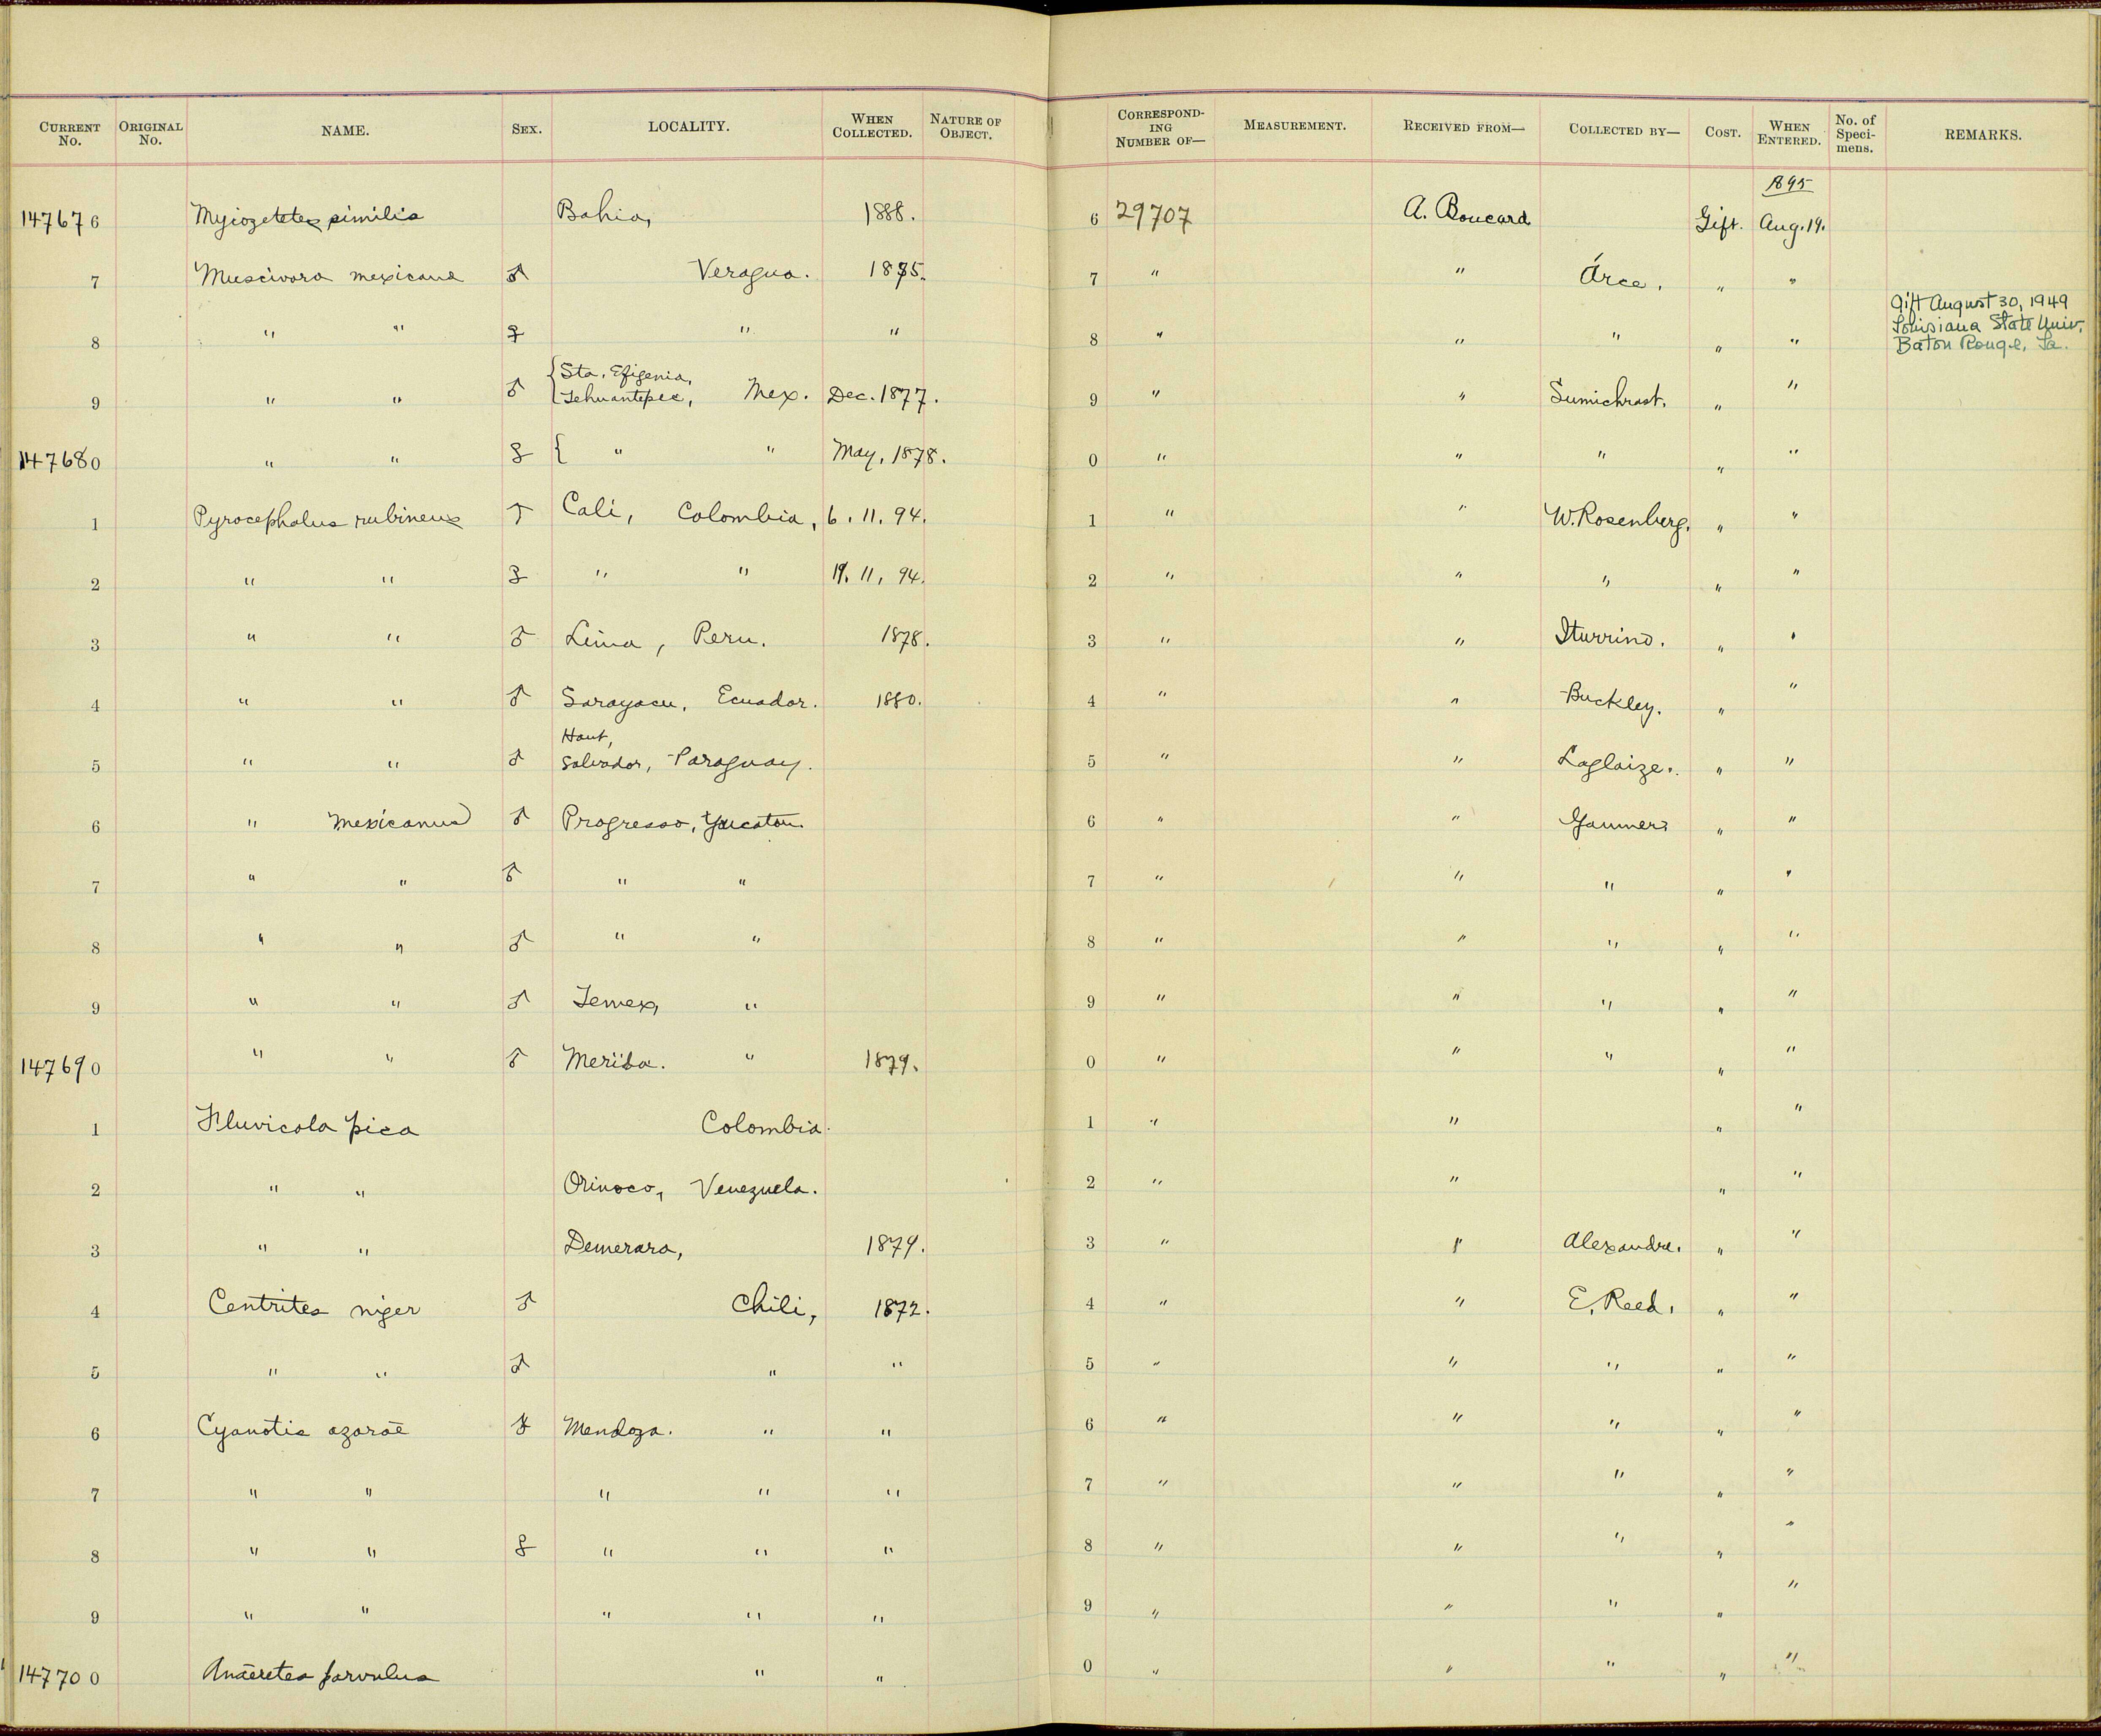 CURRENT No. ORIGINAL No. NAME. SEX. LOCALITY. WHEN COLLECTED. NATURE OF OBJECT. CORRESPONDING NUMBER OF— MEASUREMENT. RECEIVED FROM— COLLECTED BY— COST. WHEN ENTERED. No. of Specimens. REMARKS.
1895
147676 Myiozetetes similis Bahia, 1888. 6 29707 A. Boucard Gift. Aug. 19.
7 Muscivora mexicana ♂ Veragua. 1875. 7 " " Árce. " "
8 " " ♀ " " 8 " " " " " Gift August 30, 1949
Louisiana State Univ.
Baton Rouge, La.
9 " " ♂ { Sta. Efigenia,
Tehuantepec, Mex. Dec. 1877. 9 " " Sumichrast. " "
147680 " " ♀ { " " May, 1878. 0 " " " " "
1 Pyrocephalus rubineus ♂ Cali, Colombia, 6. 11. 94. 1 " " W. Rosenberg. " "
2 " " ♀ " " 19. 11, 94. 2 " " " " "
3 " " ♂ Lima, Peru. 1878. 3 " " Iturrino. " "
4 " " ♂ Sarayacu, Ecuador. 1880. 4 " " Buckley. " "
5 " " ♂ Haut,
Salvador, Paraguay. 5 " " Laglaize. " "
6 " mexicanus ♂ Progresso, Yucatan. 6 " " Gaumer. " "
7 " " ♂ " " 7 " " " " "
8 " " ♂ " " 8 " " " " "
9 " " ♂ Temex, " 9 " " " " "
147690 " " ♂ Merida. " 1879. 0 " " " " "
1 Fluvicola pica Colombia. 1 " " " "
2 " " Orinoco, Venezuela. 2 " " " "
3 " " Demerara, 1879. 3 " " Alexandre. " "
4 Centrites niger ♂ Chili, 1872. 4 " " E. Reed. " "
5 " " ♂ " " 5 " " " " "
6 Cyanotis azaræ Mendoza. " " 6 " " " " "
7 " " " " " 7 " " " " "
8 " " ♀ " " " 8 " " " " "
9 " " " " " 9 " " " " "
147700 Anæretes parvulus " " 0 " " " " "